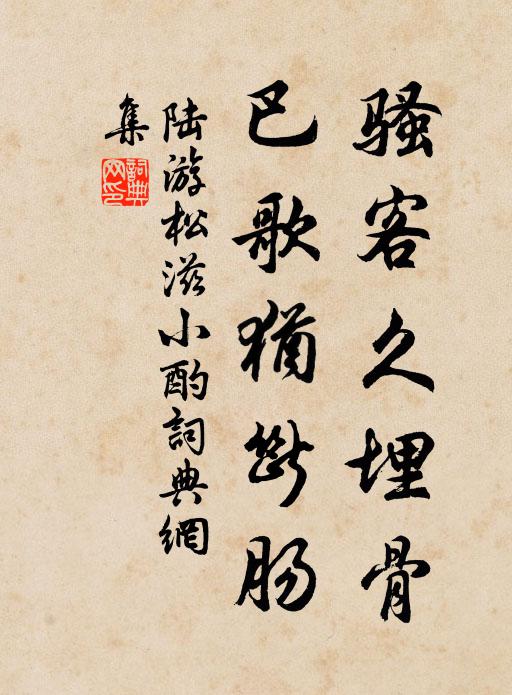 骚客久埋骨
巴歌犹断肠
陆游松滋小酌詞典網
集
詞典网印